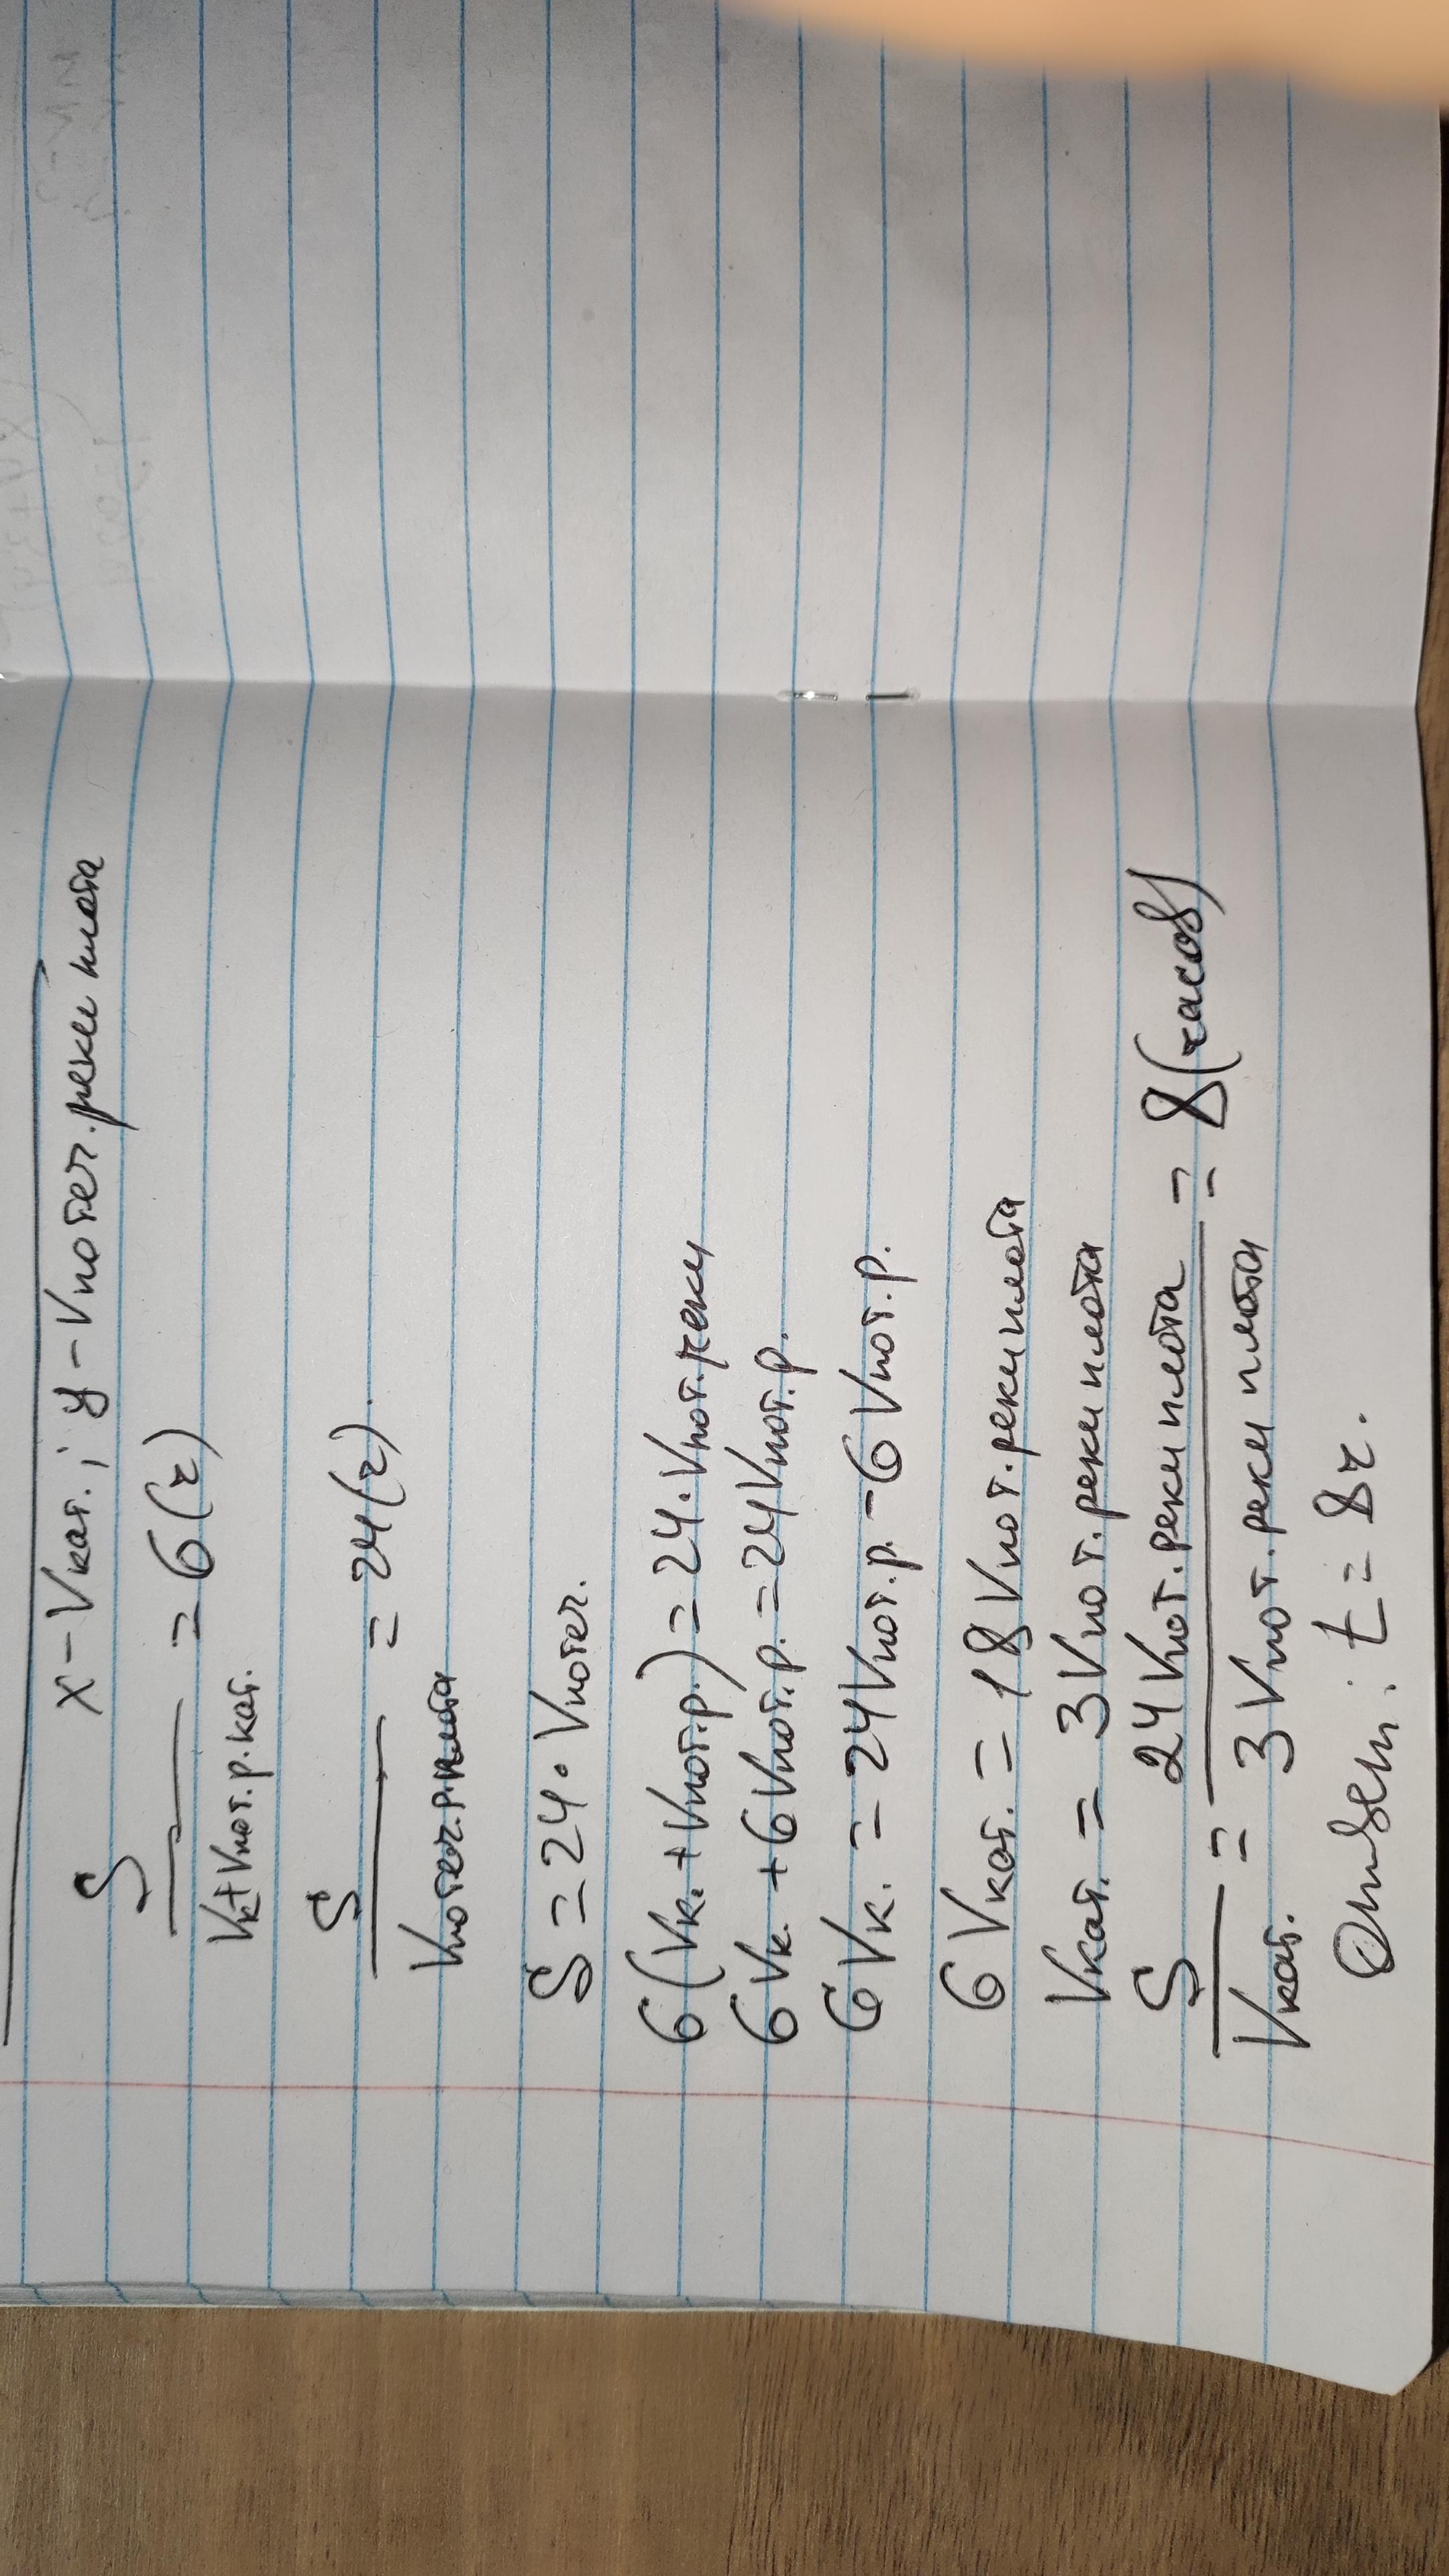 x - Vкат.; y - Vпотеч. реки плота
S
= 6(ч)
Vк+Vпот.р.кат.
S
= 24(ч).
Vпотеч.р.плота
S = 24 · Vпотеч.
6(Vк. + Vпот.р.) = 24 · Vпот.реки
6Vк. + 6Vпот.р. = 24Vпот.р.
6Vк. = 24Vпот.р. - 6Vпот.р.
6Vкат. = 18Vпот.реки плота
Vкат. = 3Vпот.реки плота
S = 24Vпот.реки плота = 8(часов)
Vкат. 3Vпот.реки плота
Ответ: t = 8ч.